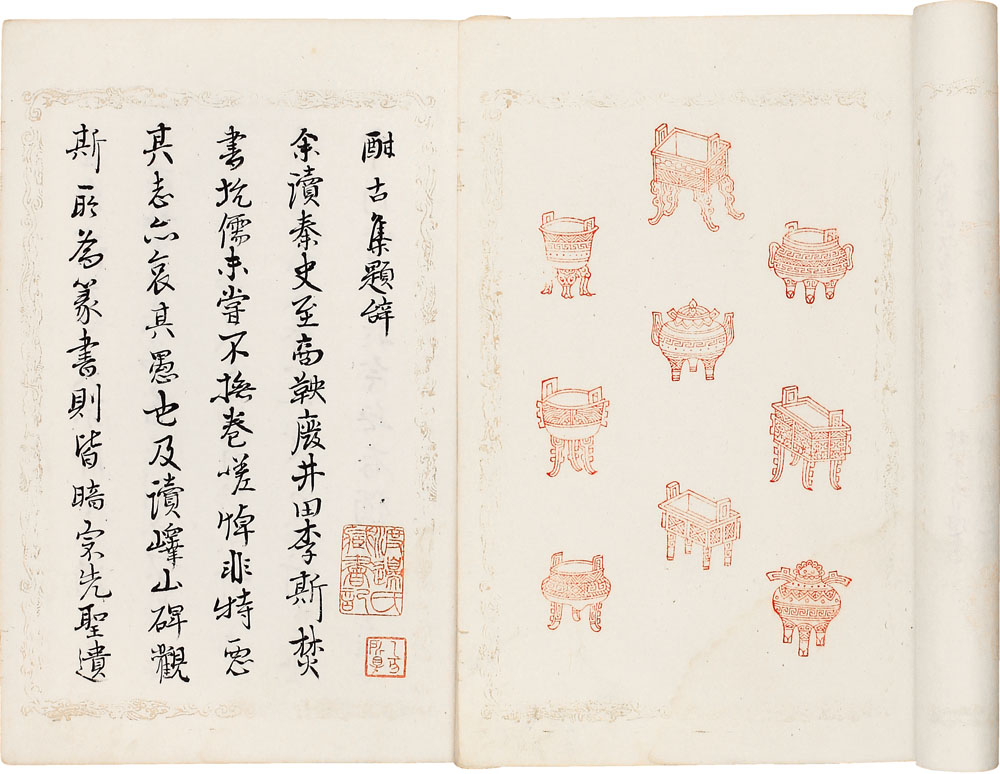 酣古集題辭
余讀秦史至商鞅廢井田李斯焚
書坑儒未嘗不撫卷嗟悼非特惡
其志亦哀其愚也及讀嶧山碑觀
斯所為篆書則皆暗宗先聖遺